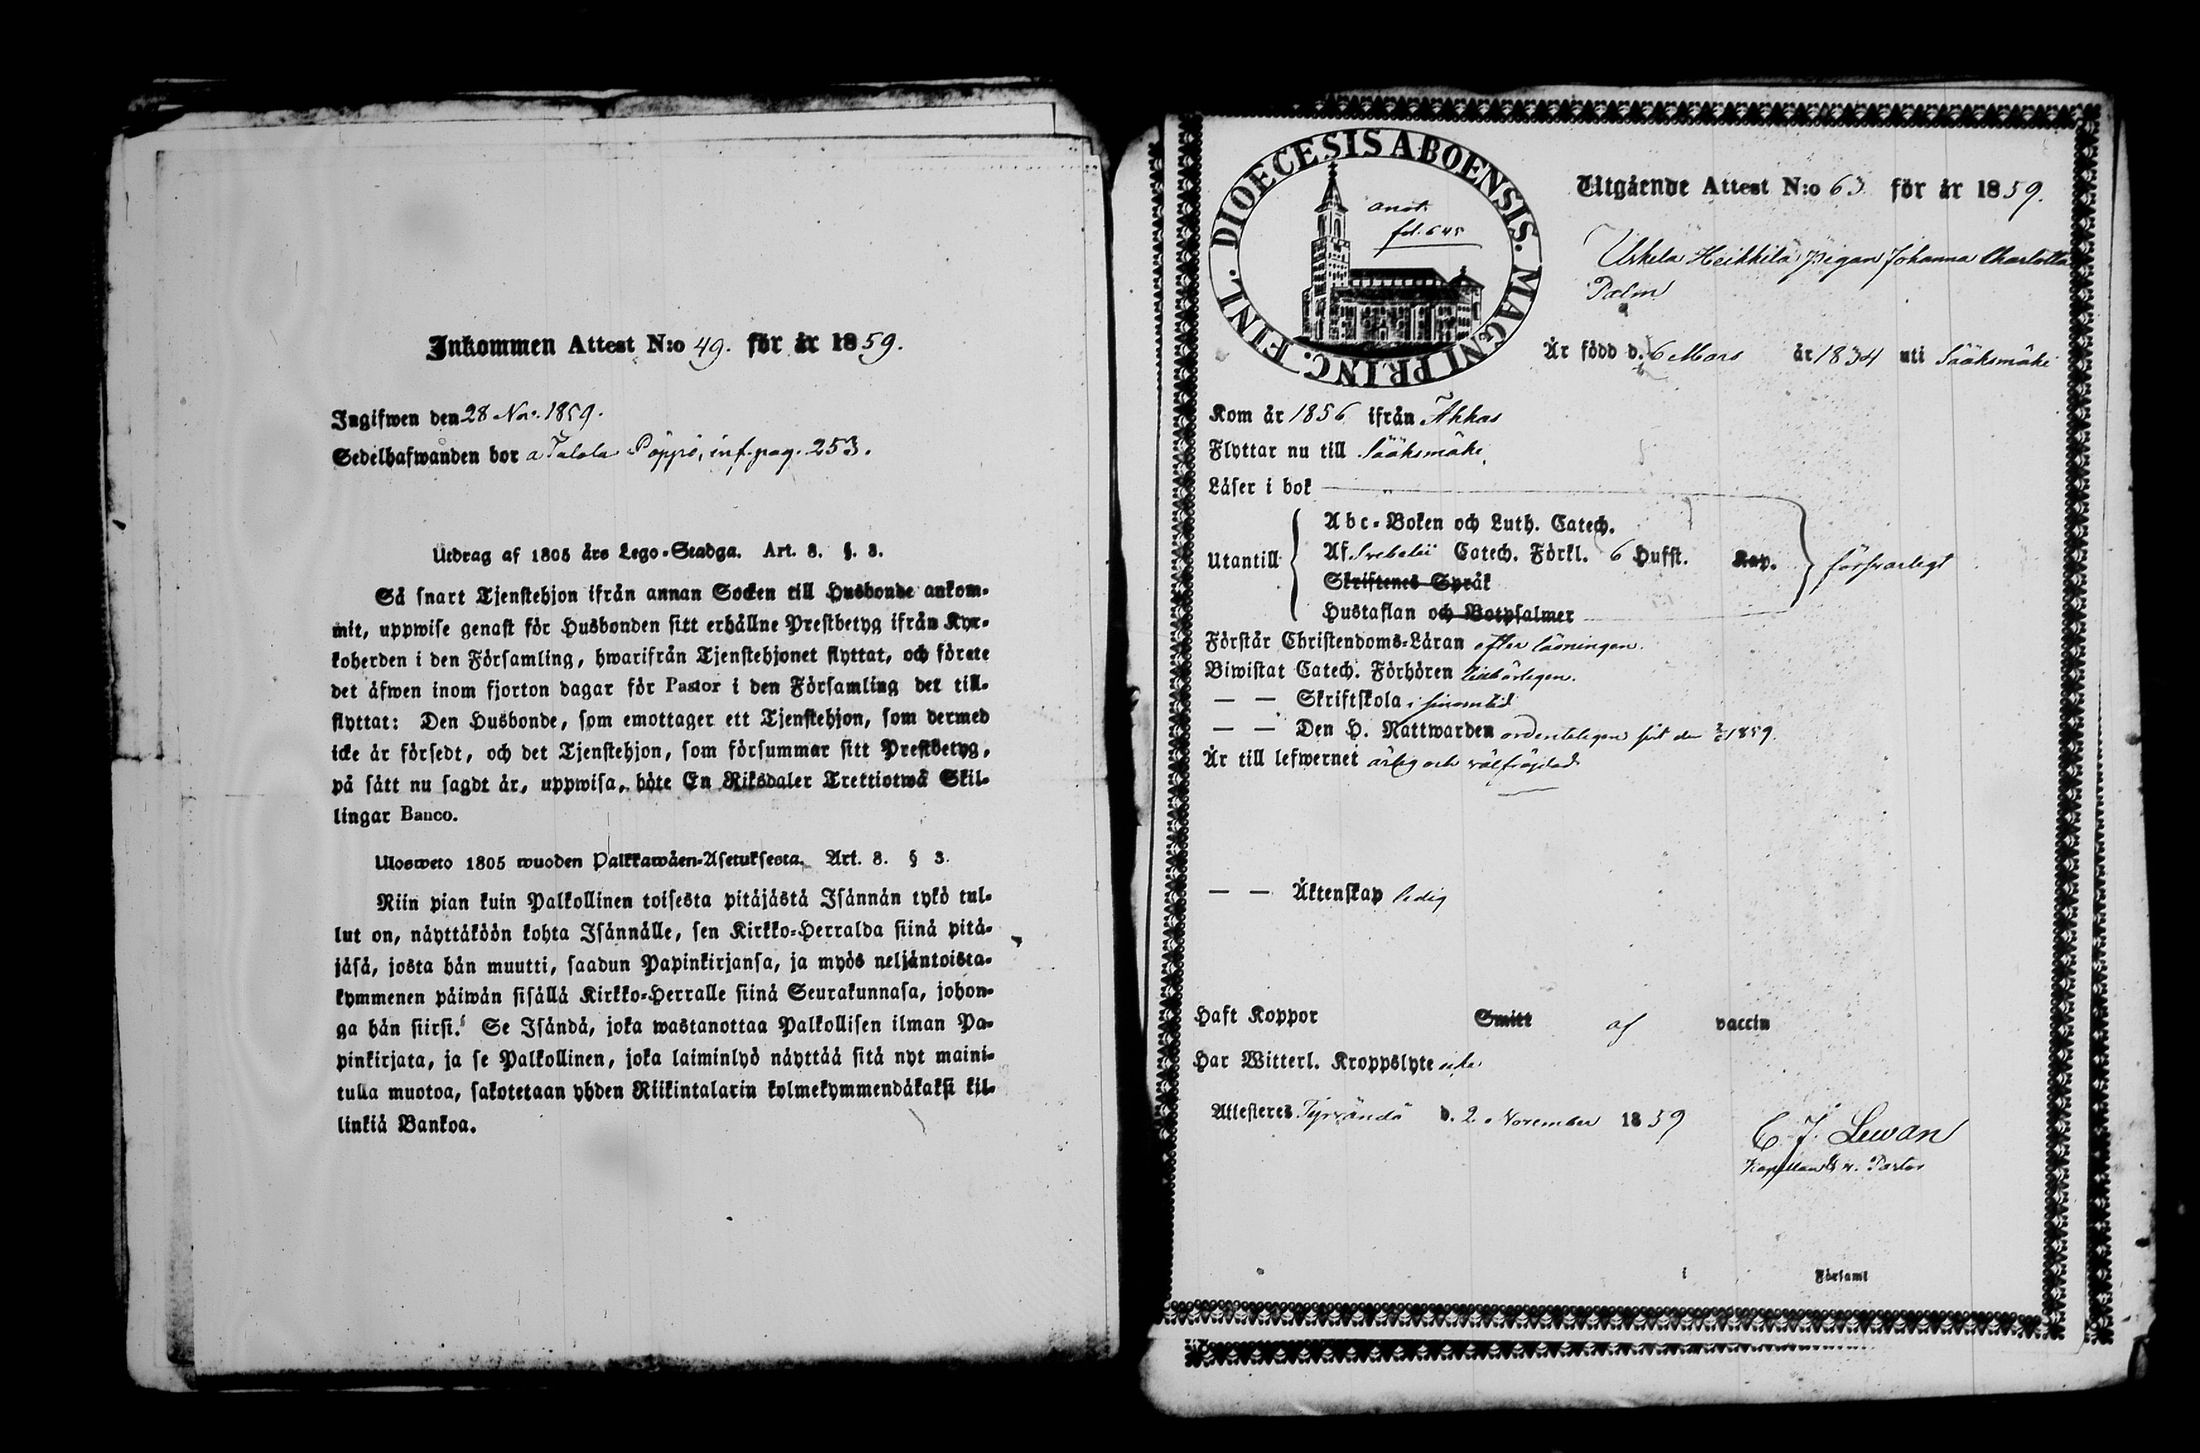 Inkommen Attest N:o 49. för år 1859.
Ingifwen den 28 Nov. 1859.
Sedelhafwanden bor å Talola Pöppö, inf. pag. 253.
Utdrag af 1805 års Lego-Stadga. Art. 8. §. 3.
Så snart Tjenstehjon ifrån annan Socken till Husbonde ankom-
mit, uppwise genast för Husbonden sitt erhållne Prestbetyg ifrån Kyr-
koherden i den Församling, hwarifrån Tjenstehjonet flyttat, och förete
det äfwen inom fjorton dagar för Pastor i den Församling det till-
flyttat: Den Husbonde, som emottager ett Tjenstehjon, som dermed
icke är försedt, och det Tjenstehjon, som försummar sitt Prestbetyg,
på sätt nu sagdt är, uppwisa, böte En Riksdaler Trettiotwå Skil-
lingar Banco.
Ulosweto 1805 wuoden Palkkawäen-Asetuksesta. Art. 8. § 3.
Niin pian kuin Palkollinen toisesta pitäjästä Isännän tykö tul-
lut on, näyttäköön kohta Isännälle, sen Kirkko-Herralda siinä pitä-
jäsä, josta hän muutti, saadun Papinkirjansa, ja myös neljäntoista-
kymmenen päiwän sisällä Kirkko-Herralle siinä Seurakunnasa, johon-
ga hän siirsi. Se Isändä, joka wastanottaa Palkollisen ilman Pa-
pinkirjata, ja se Palkollinen, joka laiminlyö näyttää sitä nyt maini-
tulla muotoa, sakotetaan yhden Riikintalarin kolmekymmendäkaksi kil-
linkiä Bankoa.
DIOECESIS ABOENSIS. MAGNI PRINC. FINL.
anot.
fol. 645
Utgående Attest N:o 63 för år 1859.
Uskela Heikkilä Pigan Johanna Charlotta
Palm
Är född d. 6 Mars år 1834 uti Sääksmäki
Kom år 1856 ifrån Akkas
Flyttar nu till Sääksmäki
Läser i bok
Utantill
Abc-Boken och Luth. Catech.
Af Svebelii Catech. Förkl. 6 Hufst. Kap.
Skriftenes Språk
Hustaflan och Botpsalmer
försvarligt
Förstår Christendoms-Läran efter läsningen.
Biwistat Catech. Förhören tillbörligen.
— — Skriftskola i sinom tid
— — Den H. Nattwarden ordenteligen sist den 1859.
Är till lefwernet ärlig och välfrejdad
— — Äktenskap ledig
Haft Koppor Smitt af vaccin
Har Witterl. Kroppslyte icke
Attesteres Tyrvändö d. 2 November 1859
C. J. Lewan
Kapellan & v. Pastor
i Församl